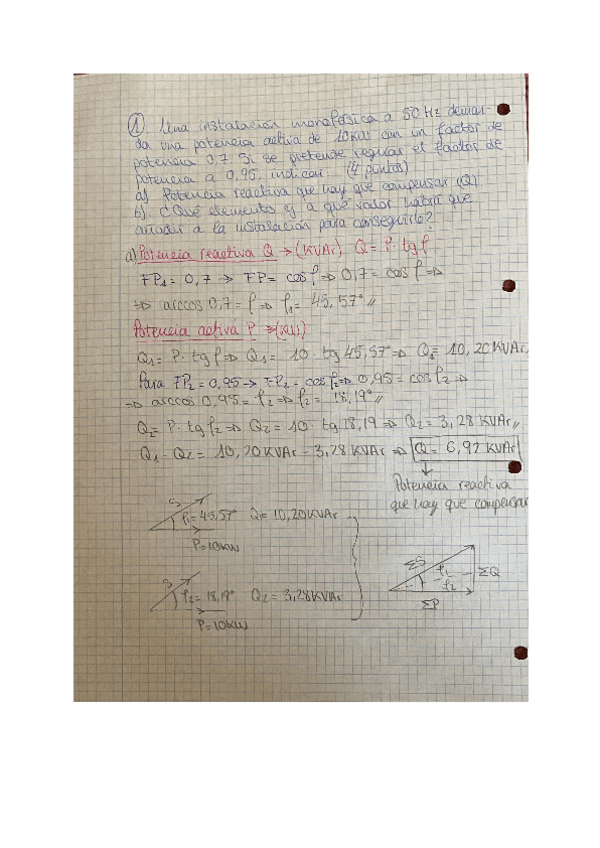 ① Una instalación monofásica a 50 Hz deman-
da una potencia activa de 10KW con un factor de
potencia 0,7 Si se pretende regular el factor de
potencia a 0,95, indicar: (4 puntos)
a) Potencia reactiva que hay que compensar (Q)
b) ¿Qué elemento y a qué valor habrá que
añadir a la instalación para conseguirlo?
a) Potencia reactiva Q → (KVAr) Q = P · tg φ
FP₁ = 0,7 → FP = cos φ ⇒ 0,7 = cos φ ⇒
⇒ arccos 0,7 = φ ⇒ φ₁ = 45,57° //
Potencia activa P ⇒ (KW)
Q₁ = P · tg φ ⇒ Q₁ = 10 · tg 45,57° ⇒ Q₁ = 10,20 KVAr //
Para FP₂ = 0,95 → FP₂ = cos φ₂ ⇒ 0,95 = cos φ₂ ⇒
⇒ arccos 0,95 = φ₂ ⇒ φ₂ = 18,19° //
Q₂ = P · tg φ₂ ⇒ Q₂ = 10 · tg 18,19 ⇒ Q₂ = 3,28 KVAr //
Q₁ - Q₂ = 10,20 KVAr - 3,28 KVAr ⇒ Q = 6,92 KVAr
↓
Potencia reactiva
que hay que compensar
S
φ₁ = 45,57° Q = 10,20 KVAr
P = 10KW
S
φ₂ = 18,19° Q₂ = 3,28 KVAr
P = 10KW
ΣS
φ₁
φ₂
ΣQ
ΣP